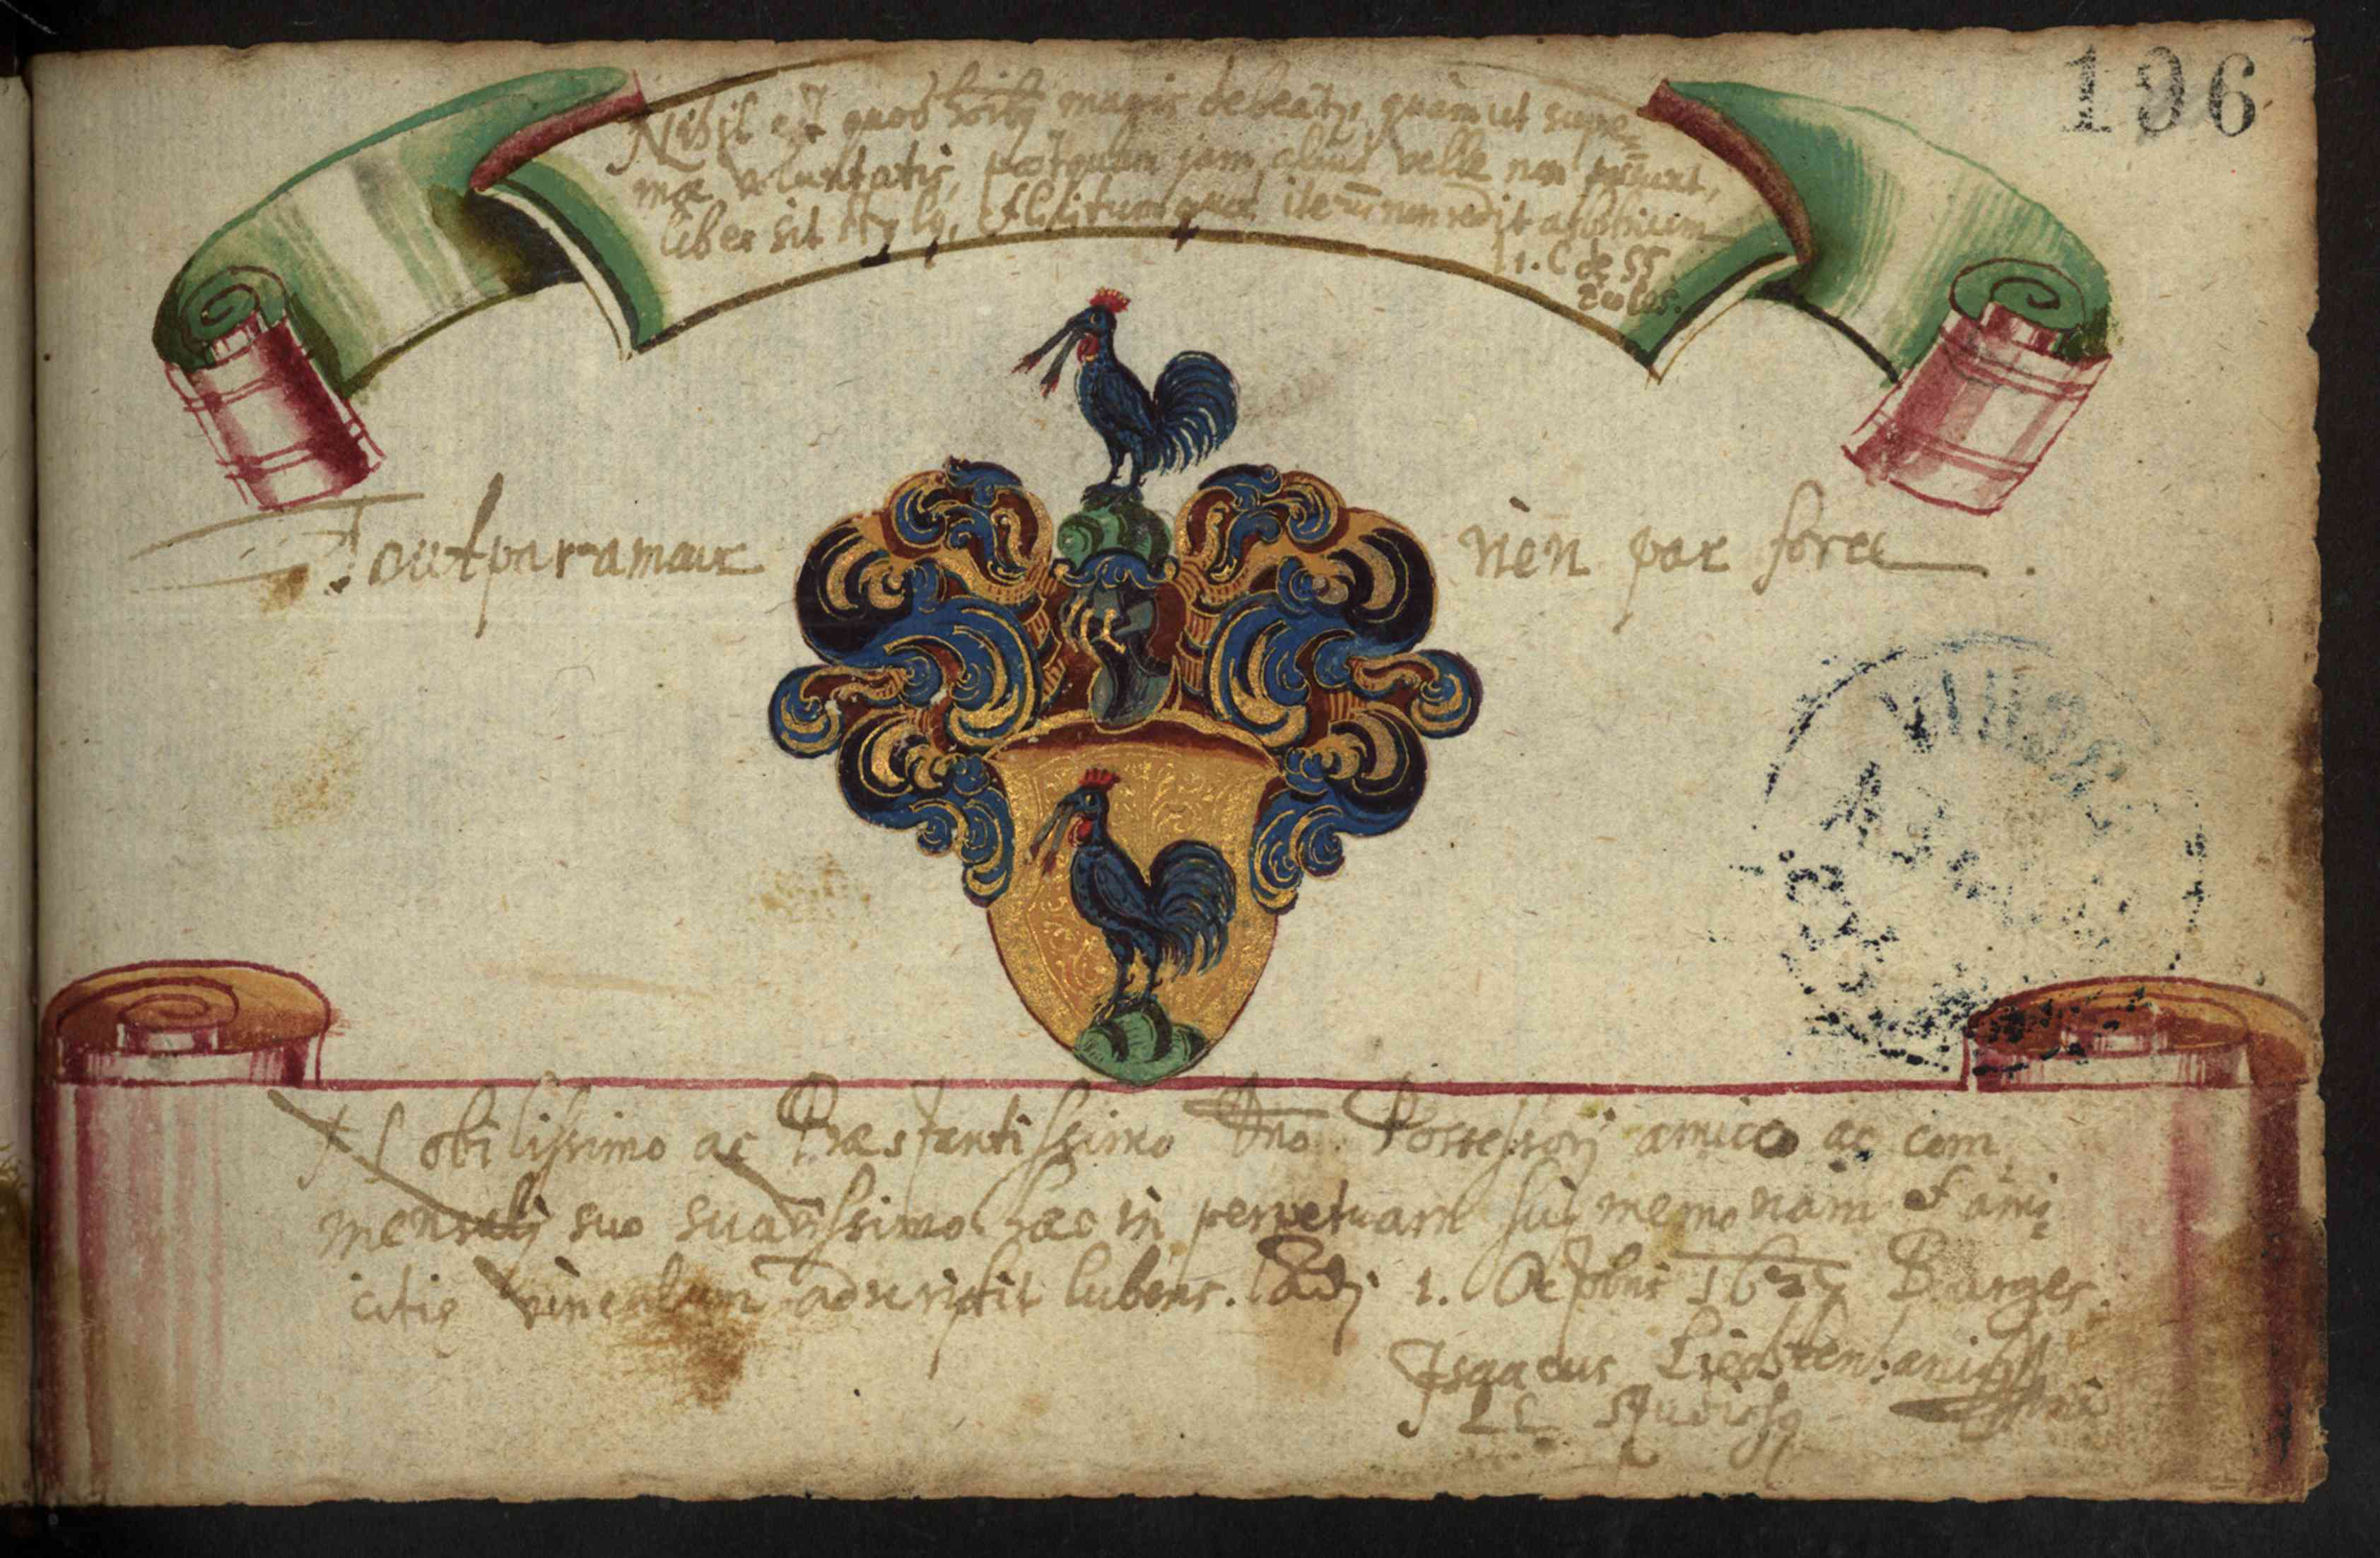 196
Nihil est quod hoĩbꝯ magis debeatꝯ, quam ut supre=
mæ voluntatis, postquam jam aliud velle non possunt,
liber sit stylꝯ, et licitum quod iterum non redit arbitrium
l. 1. C de SS
Eccles.
Tout par amour
rien par force
Nobilissimo ac Præstantissimo Dno. Possessorj amico ac com
mensalj suo suavissimo hæc in perpetuam sui memoriam et ami=
citiæ vinculum adscripsit lubens. Adj 1. Octobris 1627
Isaacus
LL Studiosꝯ